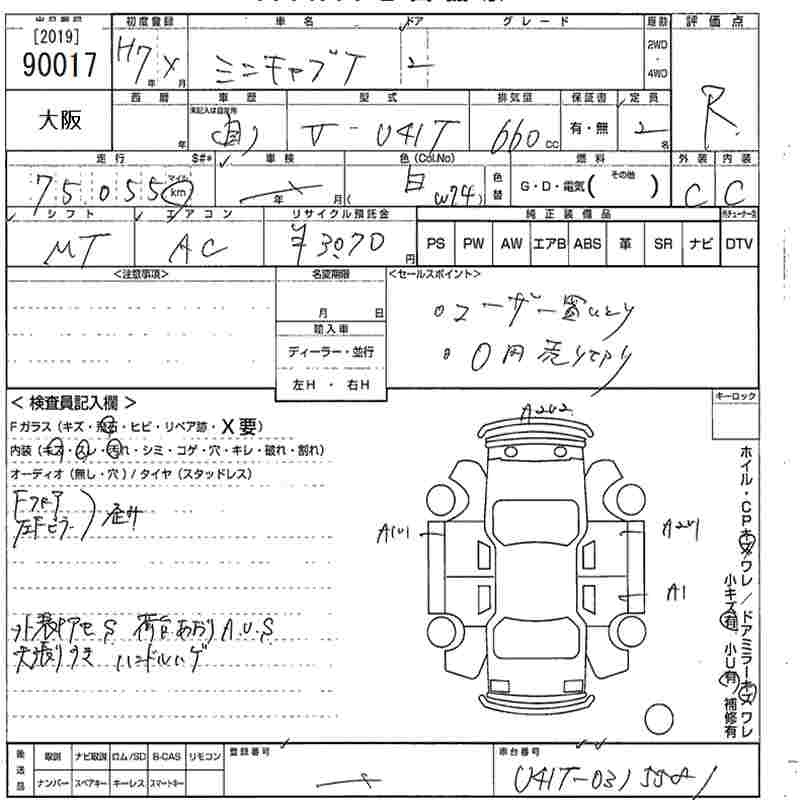 [2019] 初度登録 車名 ドア グレード 駆動 評価点
90017 H7 年 月 ミニキャブT 2 2WD・4WD R
大阪 西暦 車歴 型式 排気量 保証書 定員
未記入は自家用
年 自 V-U41T 660 cc 有・無 2 名
走行 S#* 車検 色(Col.No) 燃料 外装 内装
75,055 マイル km 年 月 白 (W74) 色替 G・D・電気( その他 ) C C
シフト エアコン リサイクル預託金 純正装備品
MT AC ¥3070 円 PS PW AW エアB ABS 革 SR ナビ DTV
<注意事項> 名変期限 <セールスポイント>
月 日
輸入車
ディーラー・並行
左H・右H
ユーザー買いとり
0円売り
< 検査員記入欄 > キーロック
Fガラス(キズ・飛石・ヒビ・リペア跡・X要)
内装(キズ・スレ・汚れ・シミ・コゲ・穴・キレ・破れ・割れ)
オーディオ(無し・穴)/タイヤ(スタッドレス)
Fフロア
左Fピラー
外装アセS 荷台あおりA.U.S
天張り ハンドルハゲ
A2U2
A1U1
A2U1
A1
ホイル・CPキズワレ/ドアミラーキズワレ
小キズ有 小U有 補修有
後送品 取説 ナビ取説 ロム/SD B-CAS リモコン 登録番号 車台番号
ナンバー スペアキー キーレス スマートキー U41T-03